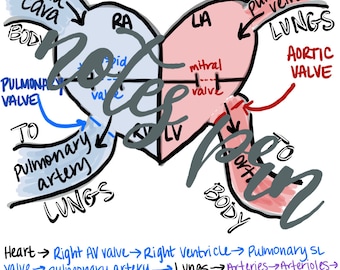 cava
RA
LA
BODY
LUNGS
mitral
valve
valve
PULMONARY
VALVE
AORTIC
VALVE
LV
TO
pulmonary
artery
LUNGS
TO
BODY
notes
pen
Heart → Right AV valve → Right Ventricle → Pulmonary SL
valve → pulmonary artery → Lungs → Arteries → Arterioles →